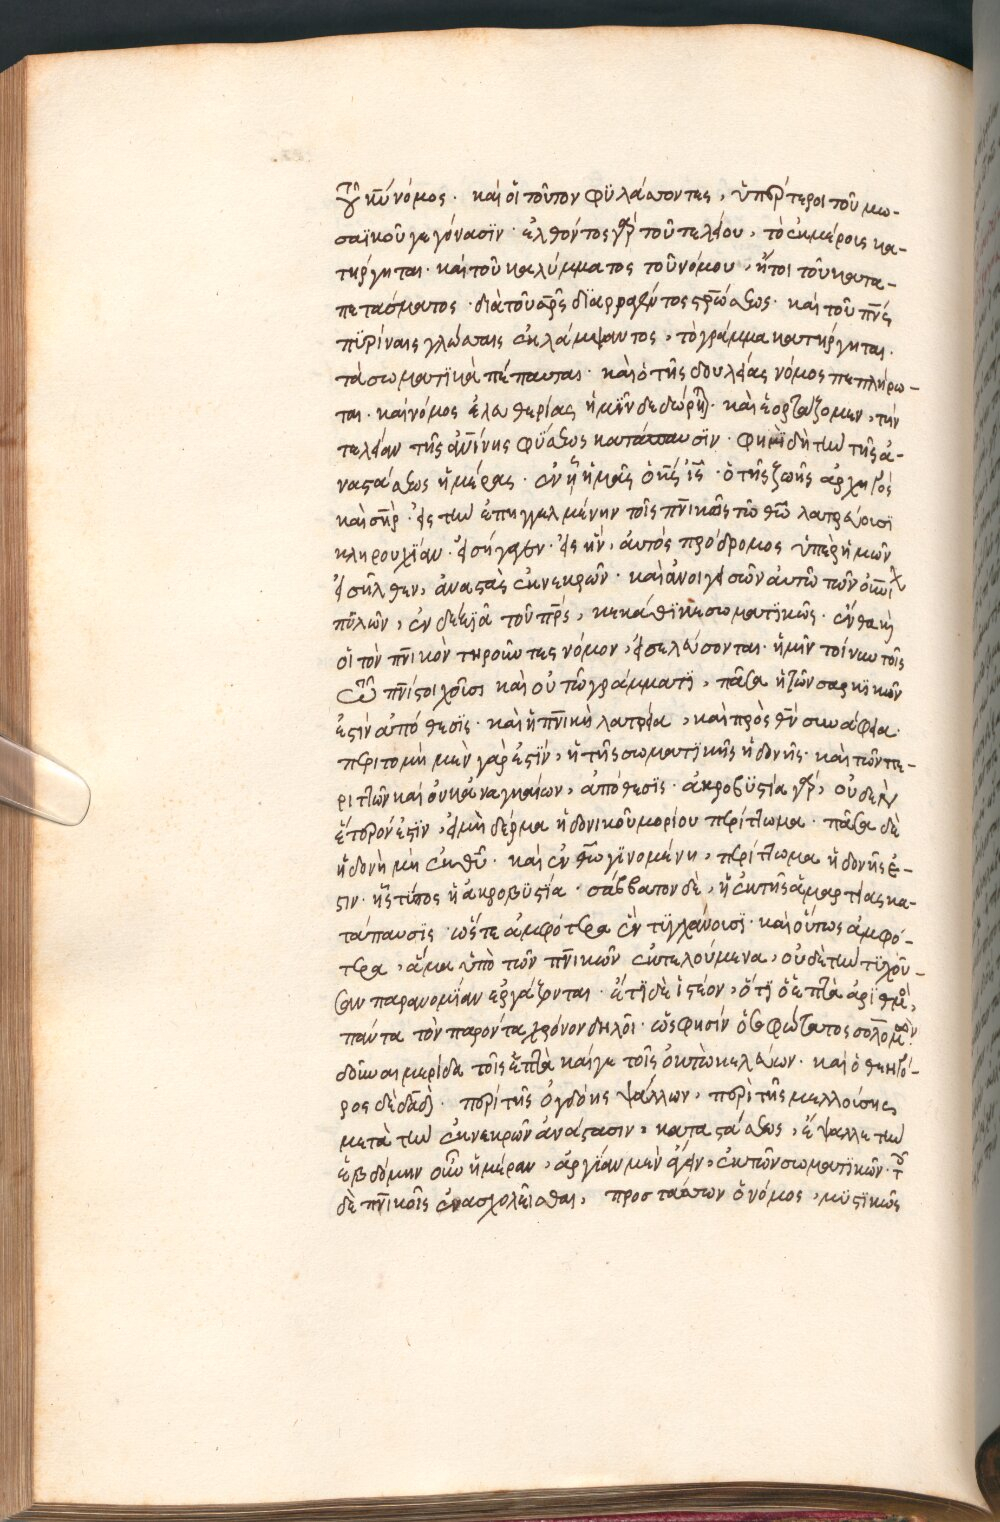 τοῦ χῦ νόμος. καὶ οἱ τοῦτον φυλάττοντες, ὑπέρτεροι τοῦ μω-
σαϊκοῦ γεγόνασϊν. ἐλθόντος γὰρ τοῦ τελείου, τὸ ἐκ μέρους κα-
τήργηται. καὶ τοῦ καλύμματος τοῦ νόμου, ἤτοι τοῦ κατα-
πετάσματος. διὰ τοῦ σρς διαρραγέντος στρώσεως. καὶ τοῦ πνς
πϋρίναις γλώσσαις ἐκλάμψαντος, τὸ γράμμα κατήργηται.
τὰ σωματϊκὰ πέπαυται. καὶ ὁ τῆς δουλείας νόμος πεπλήρω-
ται. καὶ νόμος ἐλευθερίας ἡμῖν δεδώρηται. καὶ ἑορτάζομεν, τὴν
τελείαν τῆς ἀνίνης φϋσεως κατάπαυσϊν. φημὶ δὴ τὴν τῆς ἀ-
ναστάσεως ἡμέρας. ἐν ᾗ ἡμᾶς ὁ κς ις. ὁ τῆς ζωῆς ἀρχηγός
καὶ σηρ. εἰς τὴν ἐπηγγελμένην τοῖς πνικῶς τῶ θῶ λατρεύουσϊ
κληρουχϊαν. εἰσήγαγεν. εἰς ἣν, αὐτὸς πρόδρομος ὑπὲρ ἡμῶν
εἰσῆλθεν, ἀναστὰς ἐκ νεκρῶν. καὶ ἀνοιγεισῶν αὐτῶ τῶν οὐνίων
πϋλῶν, ἐν δεξϊᾶ τοῦ πρς, κεκάθϊκε σωματϊκῶς. ἔνθα καὶ
οἱ τὸν πνικὸν τηροῦντες νόμον, εἰσελεύσονται. ἡμῖν τοίνυν τοῖς
τῶ πνι στοιχοῦσι καὶ οὐ τῶ γράμματϊ, πᾶσα ἡ τῶν σαρκϊκῶν
ἐστὶν ἀπόθεσϊς. καὶ ἡ πνικὴ λατρεία, καὶ πρὸς θν συνάφεια.
περιτομὴ μὲν γάρ ἐστϊν, ἡ τῆς σωματϊκῆς ἡδονῆς. καὶ τῶν πε-
ριττῶν καὶ οὐκ ἀναγκαίων, ἀπόθεσϊς. ἀκροβϋστία γὰρ, οὐδὲν
ἕτερόν ἐστϊν, εἰ μὴ δέρμα ἡδονικοῦ μορίου περίττωμα. πᾶσα δὲ
ἡδονὴ μὴ ἐκ θῦ. καὶ ἐν θῶ γϊνομένη, περίττωμα ἡδονῆς ἐ-
στιν. ἧς τύπος ἡ ἀκροβϋστία. σάββατον δὲ, ἡ ἐκ τῆς ἁμαρτίας κα-
τάπαυσϊς. ὥστε ἀμφότερα ἓν τϋγχάνουσϊ. καὶ οὕτως ἀμφό-
τερα, ἅμα ὑπὸ τῶν πνικῶν ἐκτελούμενα, οὐδὲ τὴν τϋχοῦ-
σαν παρανομϊαν ἐργάζονται. ἔτϊ δὲ ἰστέον, ὅτϊ ὁ ἑπτὰ ἀρϊθμὸς,
πάντα τὸν παρόντα χρόνον δηλοῖ. ὥς φησὶν ὁ σοφώτατος σολομῶν.
δοῦναι μερίδα τοῖς ἑπτὰ καί γε τοῖς ὀκτὼ κελεύων. καὶ ὁ θεηγό-
ρος δὲ δᾶδ. περὶ τῆς ὀγδόης ψάλλων, περὶ τῆς μελλούσης
μετὰ τὴν ἐκ νεκρῶν ἀνάστασιν, καταστάσεως, ἔψαλλε τὴν
ἑβδόμην οὖν ἡμέραν, ἀργϊαν μὲν ἄγειν, ἐκ τῶν σωματϊκῶν. τοῖς
δὲ πνικοῖς ἐνασχολεῖσθαι, προστάττων ὁ νόμος, μϋστϊκῶς